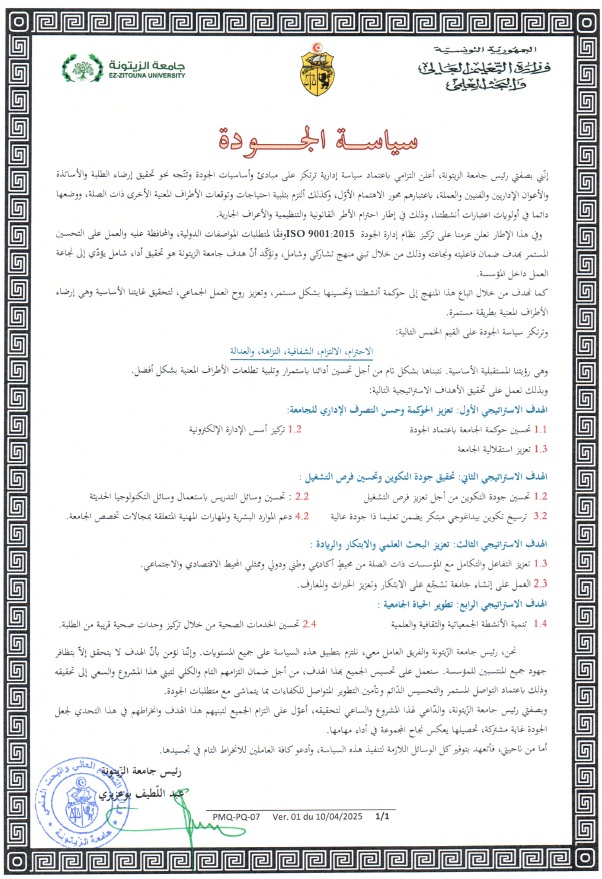 الجمهورية التونسية
وزارة التعليم العالي
والبحث العلمي
جامعة الزيتونة
EZ-ZITOUNA UNIVERSITY
سياسة الجودة
إنّني بصفتي رئيس جامعة الزيتونة، أعلن التزامي باعتماد سياسة إدارية ترتكز على مبادئ وأساسيات الجودة وتتّجه نحو تحقيق إرضاء الطلبة والأساتذة
والأعوان الإداريين والفنيين والعملة، باعتبارهم محور الاهتمام الأوّل، وكذلك ألتزم بتلبية احتياجات وتوقعات الأطراف المعنية الأخرى ذات الصلة، ووضعها
دائما في أولويات اعتبارات أنشطتنا، وذلك في إطار احترام الأطر القانونية والتنظيمية والأعراف الجارية.
وفي هذا الإطار نعلن عزمنا على تركيز نظام إدارة الجودة ISO 9001:2015 وفقًا لمتطلبات المواصفات الدولية، والمحافظة عليه والعمل على التحسين
المستمر بهدف ضمان فاعليته ونجاعته وذلك من خلال تبني منهج تشاركي وشامل، ونؤكّد أنّ هدف جامعة الزيتونة هو تحقيق أداء شامل يؤدّي إلى نجاعة
العمل داخل المؤسسة.
كما نهدف من خلال اتباع هذا المنهج إلى حوكمة أنشطتنا وتحسينها بشكل مستمر، وتعزيز روح العمل الجماعي، لتحقيق غايتنا الأساسية وهي إرضاء
الأطراف المعنية بطريقة مستمرة.
وترتكز سياسة الجودة على القيم الخمس التالية:
الاحترام، الالتزام، الشفافية، النزاهة، والعدالة
وهي رؤيتنا المستقبلية الأساسية. نتبناها بشكل تام من أجل تحسين أدائنا باستمرار وتلبية تطلعات الأطراف المعنية بشكل أفضل.
وبذلك نعمل على تحقيق الأهداف الاستراتيجية التالية:
الهدف الاستراتيجي الأول: تعزيز الحوكمة وحسن التصرف الإداري للجامعة:
1.1 تحسين حوكمة الجامعة باعتماد الجودة 1.2 تركيز أسس الإدارة الإلكترونية
1.3 تعزيز استقلالية الجامعة
الهدف الاستراتيجي الثاني: تحقيق جودة التكوين وتحسين فرص التشغيل :
1.2 تحسين جودة التكوين من أجل تعزيز فرص التشغيل 2.2 : تحسين وسائل التدريس باستعمال وسائل التكنولوجيا الحديثة
3.2 ترسيخ تكوين بيداغوجي مبتكر يضمن تعليما ذا جودة عالية 4.2 دعم الموارد البشرية والمهارات المهنية المتعلقة بمجالات تخصص الجامعة.
الهدف الاستراتيجي الثالث: تعزيز البحث العلمي والابتكار والريادة :
1.3 تعزيز التفاعل والتكامل مع المؤسسات ذات الصلة من محيط أكاديمي وطني ودولي وممثلي المحيط الاقتصادي والاجتماعي.
2.3 العمل على إنشاء جامعة تشجّع على الابتكار وتعزيز الخبرات والمعارف.
الهدف الاستراتيجي الرابع: تطوير الحياة الجامعية :
1.4 تنمية الأنشطة الجمعياتية والثقافية والعلمية 2.4 تحسين الخدمات الصحية من خلال تركيز وحدات صحية قريبة من الطلبة.
نحن، رئيس جامعة الزّيتونة والفريق العامل معي، نلتزم بتطبيق هذه السياسة على جميع المستويات. وإنّنا نؤمن بأنّ الهدف لا يتحقق إلاّ بتظافر
جهود جميع المنتسبين للمؤسسة. سنعمل على تحسيس الجميع بهذا الهدف، من أجل ضمان التزامهم التام والكلي لتبني هذا المشروع والسعي إلى تحقيقه
وذلك باعتماد التواصل المستمر والتحسيس الدّائم وتأمين التطوير المتواصل للكفاءات بما يتماشى مع متطلبات الجودة.
وبصفتي رئيس جامعة الزّيتونة، والدّاعي لهذا المشروع والساعي لتحقيقه، أعوّل على التزام الجميع لتبنيهم هذا الهدف وانخراطهم في هذا التحدي لجعل
الجودة غاية مشتركة، تحصيلها يعكس نجاح المجموعة في أداء مهامها.
أما من ناحيتي، فأتعهد بتوفير كل الوسائل اللازمة لتنفيذ هذه السياسة، وأدعو كافة العاملين للانخراط التام في تجسيدها.
رئيس جامعة الزّيتونة
عبد اللّطيف بوعزيزي
PMQ-PQ-07 Ver. 01 du 10/04/2025 1/1